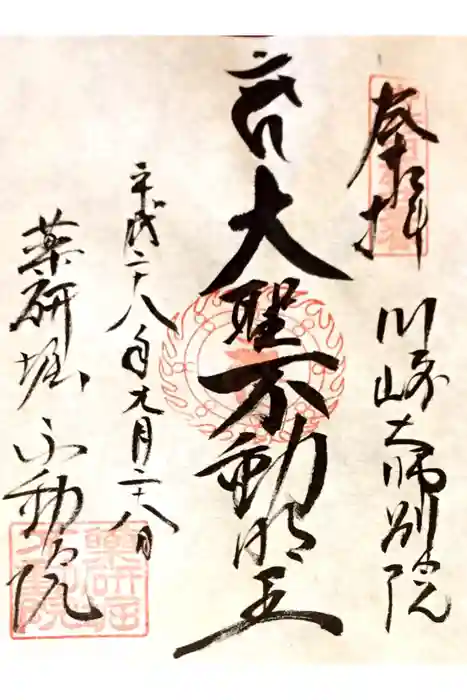 奉拝
川崎大師別院
大聖不動明王
平成二十八年元月二十八日
薬研堀不動院